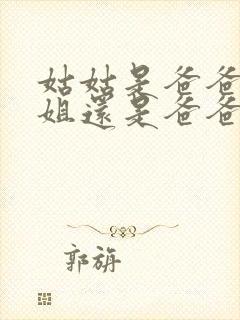 姑姑是爸爸
姐還是爸爸
郭旃